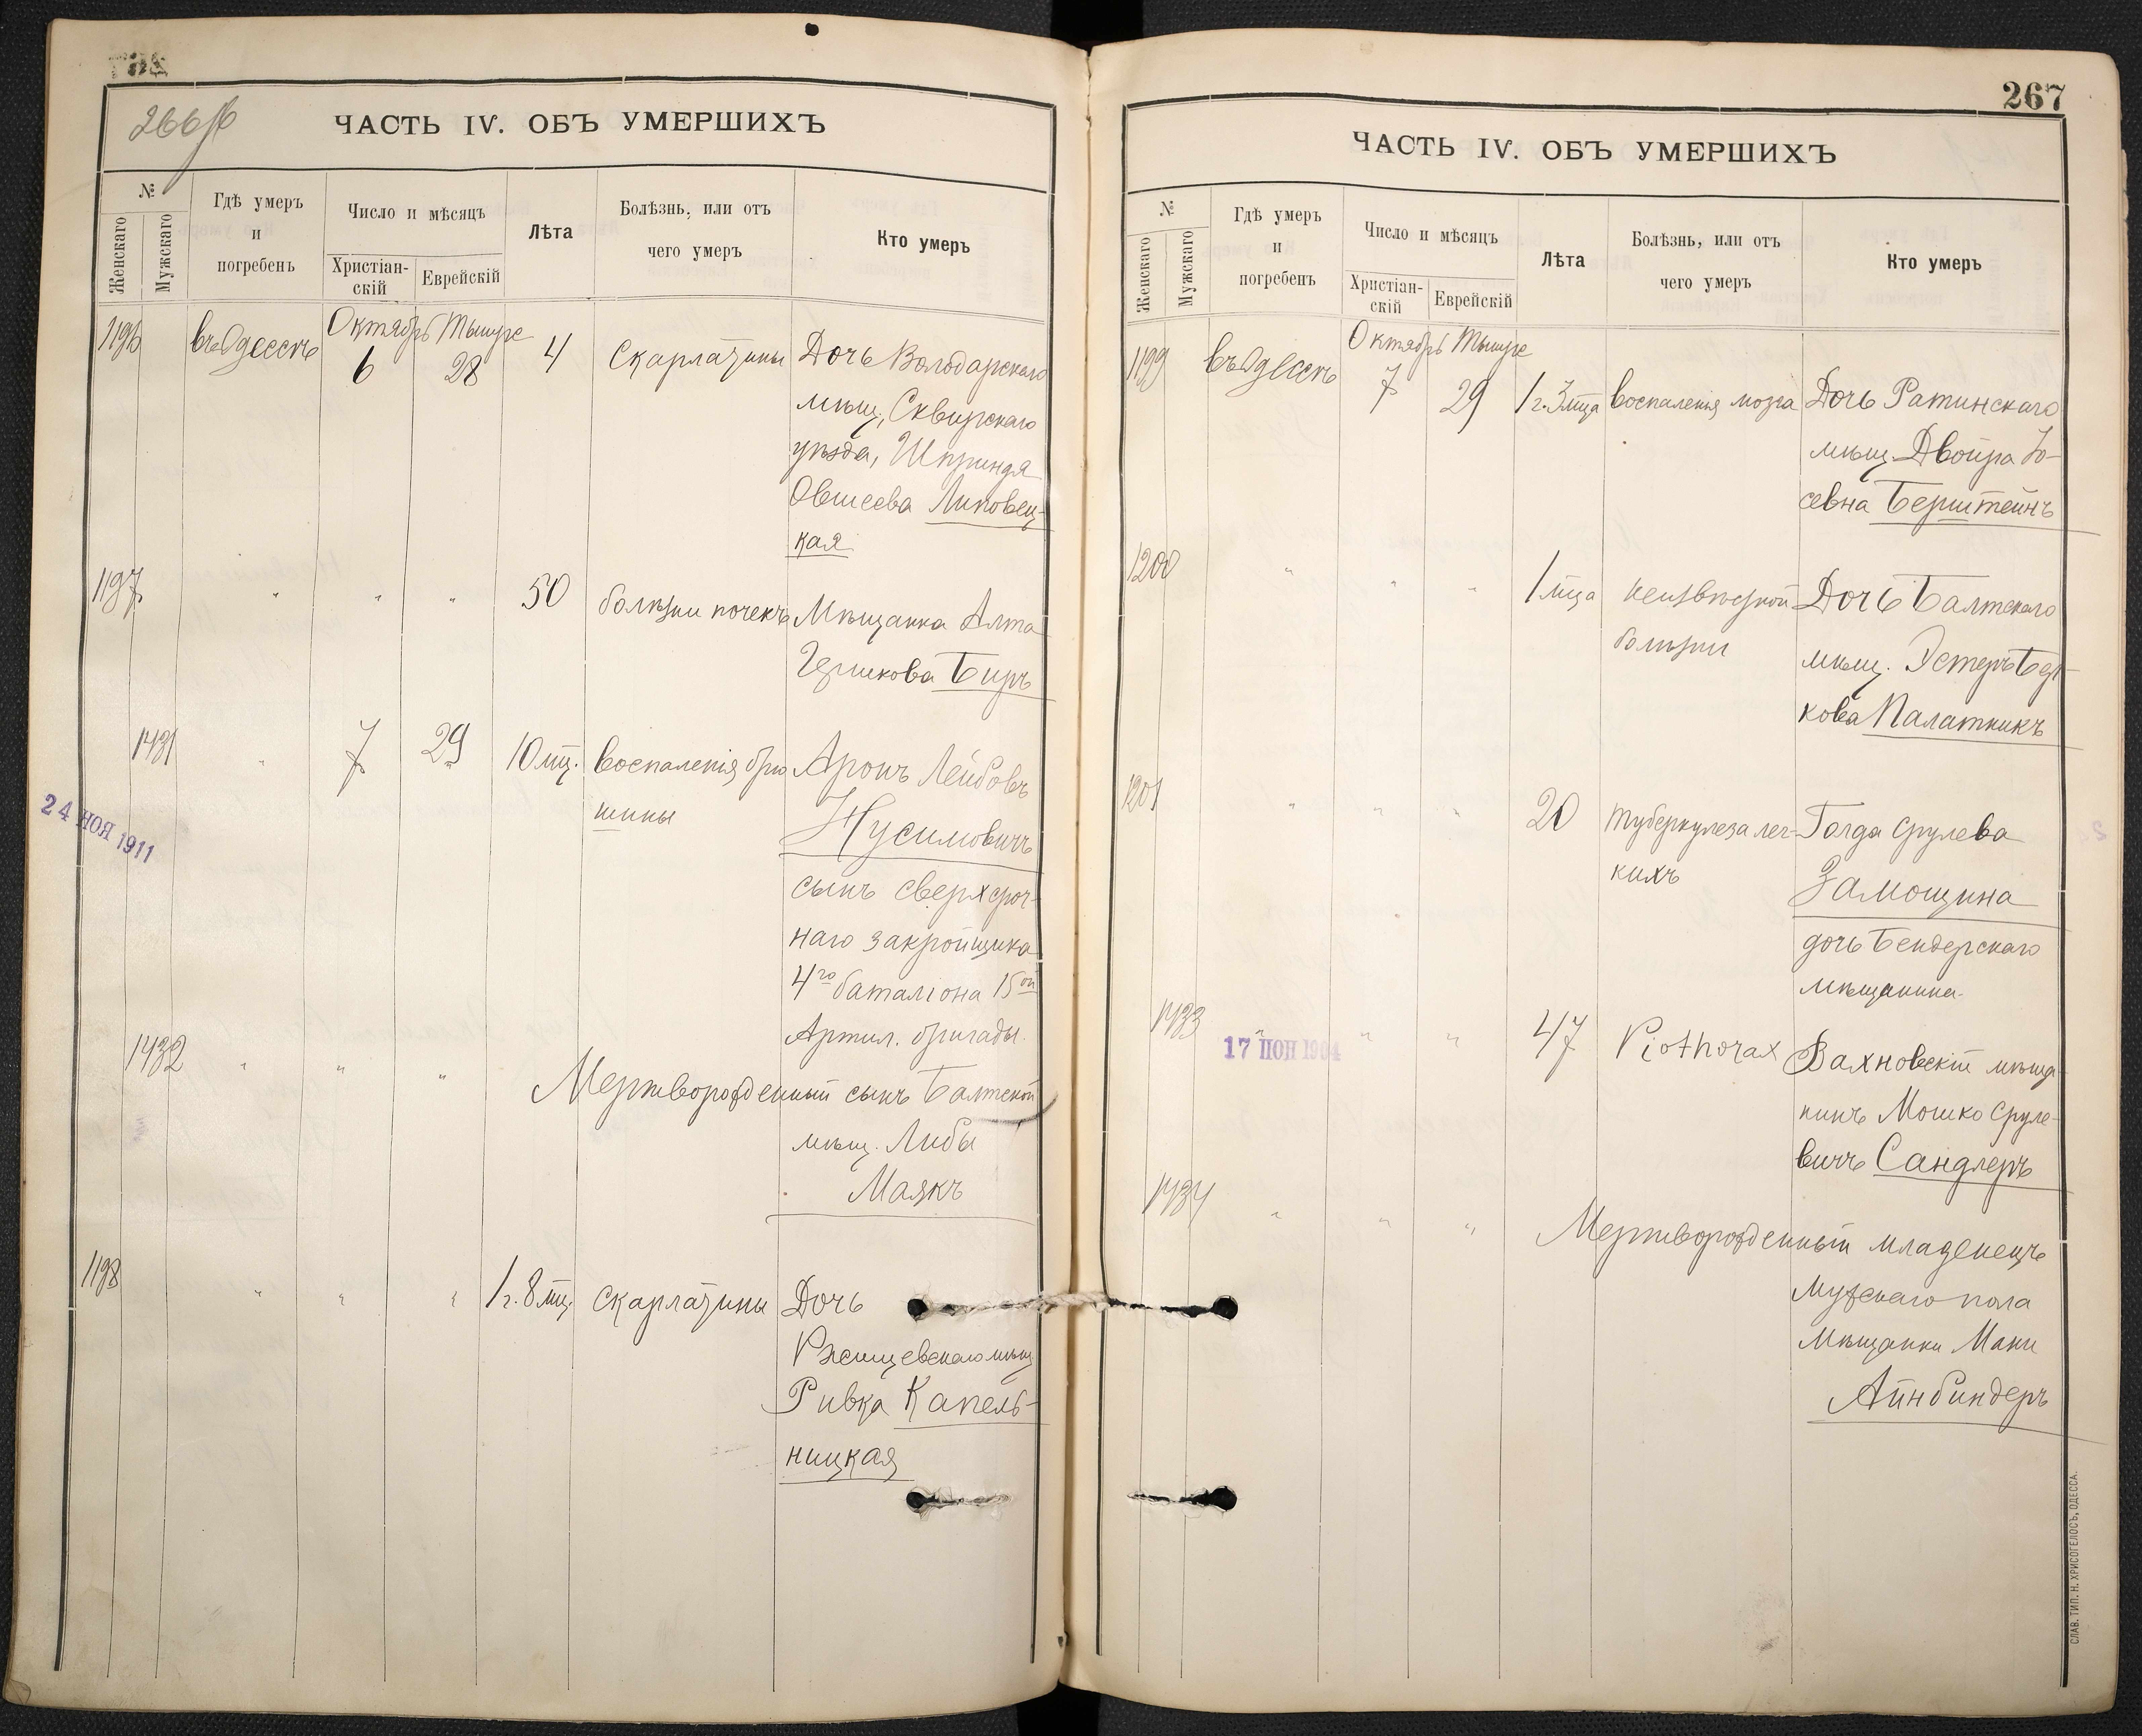 266
ЧАСТЬ IV. ОБЪ УМЕРШИХЪ
№
Женскаго
Мужскаго
Гдѣ умеръ
и
погребенъ
Число и мѣсяцъ
Христіан-
скій
Еврейскій
Лѣта
Болѣзнь, или отъ
чего умеръ
Кто умеръ
1196 въ Одессѣ Октябрь 6 Тышре 28 4 Скарлатины Дочь Володарскаго
мѣщ., Сквирскаго
уѣзда, Шпринця
Овшеева Липовец-
кая
1197 " " " 50 болѣзни почекъ Мѣщанка Алта
Гершкова Биръ
1431 " 7 29 10 мц. воспаленія брю Аронъ Лейбовъ
шины Нусимовичъ
сынъ сверхсроч-
наго закройщика
4го баталіона 15ой
Артил. бригады.
24 НОЯ 1911
1432 " " " Мертворожденный сынъ Балтской
мѣщ. Либы
Маякъ
1198 " " " 1 г. 8 мц. Скарлатины Дочь
Ржищевскаго мѣщ
Ривка Капель-
ницкая
267
ЧАСТЬ IV. ОБЪ УМЕРШИХЪ
№
Женскаго
Мужскаго
Гдѣ умеръ
и
погребенъ
Число и мѣсяцъ
Христіан-
скій
Еврейскій
Лѣта
Болѣзнь, или отъ
чего умеръ
Кто умеръ
1199 въ Одессѣ Октябрь 7 Тышре 29 1 г. 3 мца воспаленія мозга Дочь Ратинскаго
мѣщ. Двойра Іо-
севна Берштейнъ
1200 " " " 1 мца неизвѣстной Дочь Балтскаго
болѣзни мѣщ. Эстеръ Бер-
кова Палатникъ
1201 " " " 20 туберкулеза лег- Голда Срулева
кихъ Замощина
дочь Бендерскаго
мѣщанина.
1433 " " " 47 Piothorax Вахновскій мѣща
нинъ Мошко Сруле-
вичъ Сандлеръ
17 ІЮН 1904
1434 " " " Мертворожденный младенецъ
мужскаго пола
мѣщанки Мани
Айнбиндеръ
СЛАВ. ТИП. Н. ХРИСОГЕЛОСЪ, ОДЕССА.